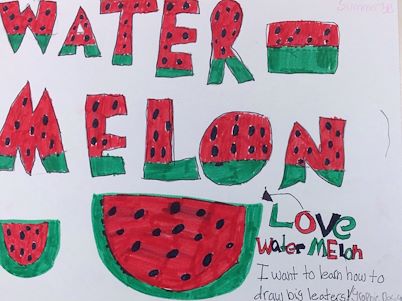 WATER
MELON
LOVE
Water MELon
I want to learn how to
draw big leaters!